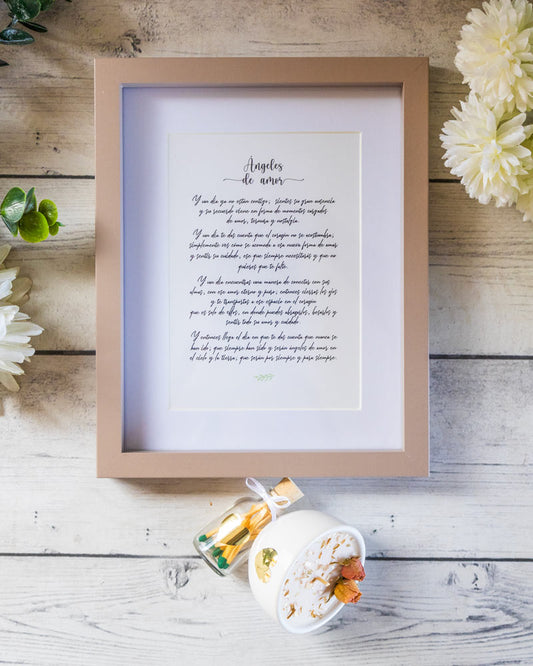 Ángeles
de amor
Y un día ya no están contigo, sientes su gran ausencia
y su recuerdo viene en forma de momentos cargados
de amor, ternura y nostalgia.
Y un día te das cuenta que el corazón no se acostumbra,
simplemente ves cómo se acomoda a esa nueva forma de amar
y sentir su cuidado, ese que siempre necesitarás y que no
quieres que te falte.
Y un día encuentras una manera de conectar con sus
almas, con ese amor eterno y puro; entonces cierras los ojos
y te transportas a ese espacio en el corazón
que es solo de ellos, en donde puedes abrazarlos, besarlos y
sentir todo su amor y cuidado.
Y entonces llega el día en que te das cuenta que nunca se
han ido, que siempre han sido y serán ángeles de amor en
el cielo y la tierra, que serán por siempre y para siempre.